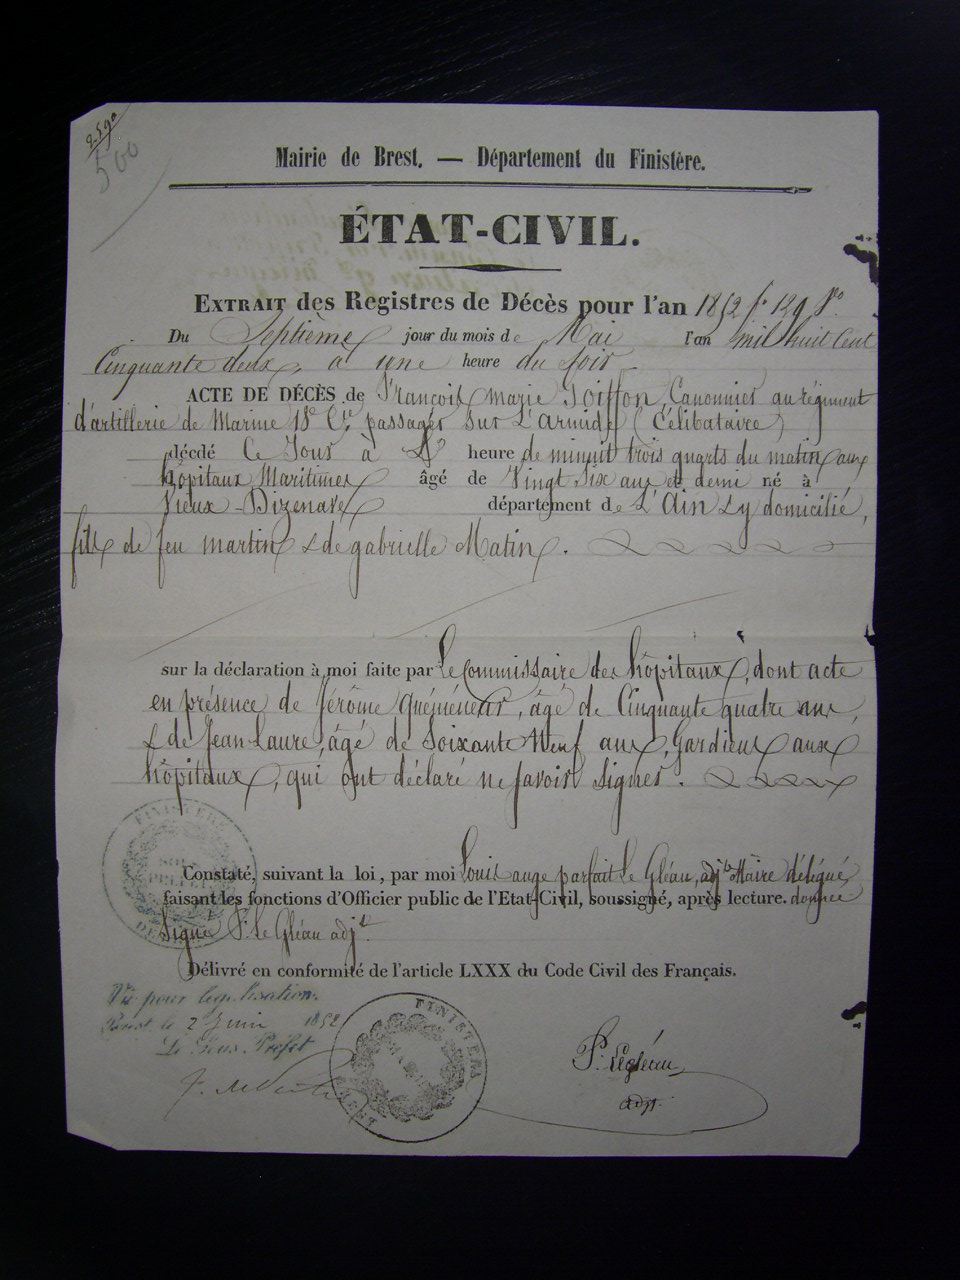 500
Mairie de Brest. — Département du Finistère.
ÉTAT-CIVIL.
EXTRAIT des Registres de Décès pour l'an 1852 fo 129 Ro
Du Septième jour du mois de Mai l'an mil huit Cent
Cinquante deux, à une heure du Soir
ACTE DE DÉCÈS de Francois marie Soiffon Canonnier au régiment
d'artillerie de Marine 18e Cie passager Sur L'armide (Célibataire)
décédé Ce Jour à heure de minuit trois quarts du matin aux
hôpitaux Maritimes âgé de Vingt Six ans et demi né à
Vieux-Dizenave département de L'Ain y domicilié,
fils de feu martin & de gabrielle Matin.
sur la déclaration à moi faite par Le Commissaire des hôpitaux, dont acte
en présence de Jérôme Quéméneur, âgé de Cinquante quatre ans,
& de Jean Laure, âgé de Soixante Neuf ans, Gardiens aux
hôpitaux, qui ont déclaré ne savoir Signer.
Constaté, suivant la loi, par moi Louis ange parfait Le Gléau, adjt Maire délégué,
faisant les fonctions d'Officier public de l'Etat-Civil, soussigné, après lecture. donnée
Signé P. Le Gléau adjt
Délivré en conformité de l'article LXXX du Code Civil des Français.
Vu pour légalisation.
Brest le 2 Juin 1852
Le Sous Préfet
FINISTERE
FINISTERE
BREST
P. Legléau
adjt.